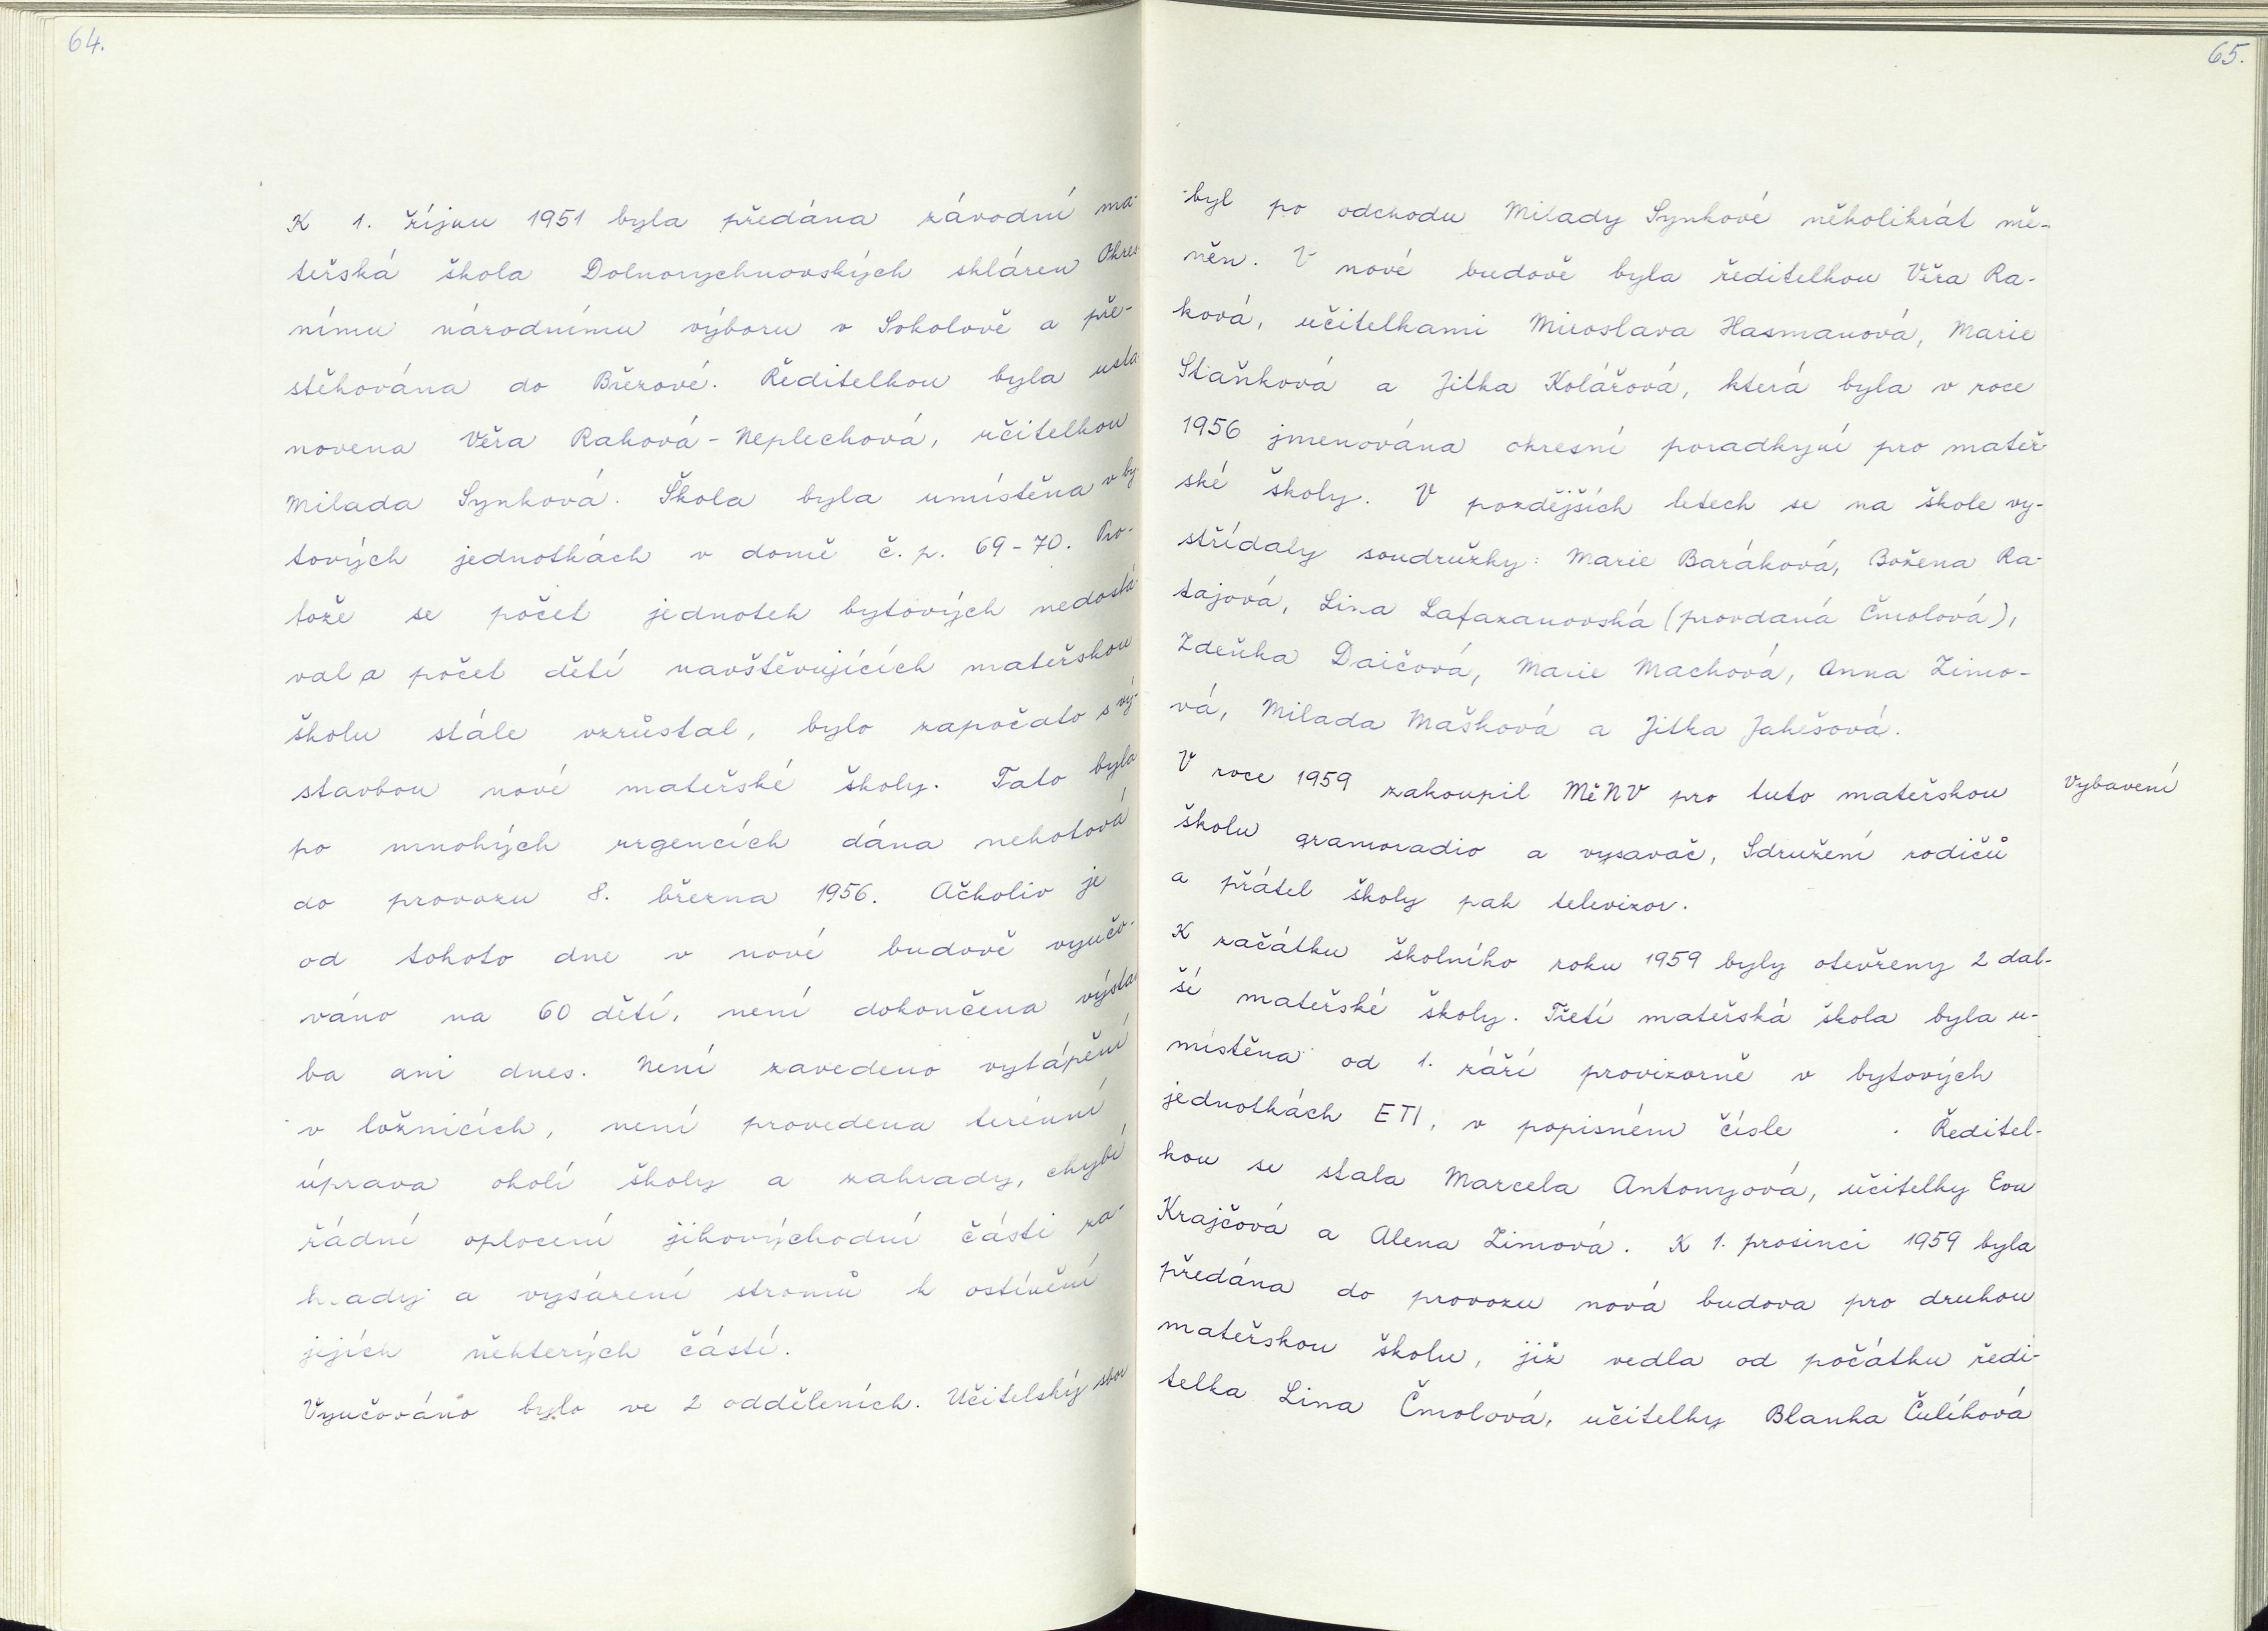 64.
K 1. říjnu 1951 byla předána závodní ma-
teřská škola Dolnorychnovských skláren Okres-
nímu národnímu výboru v Sokolově a pře-
stěhována do Březové. Ředitelkou byla usta-
novena Věra Raková-Neplechová, učitelkou
Milada Synková. Škola byla umístěna v by-
tových jednotkách v domě č. p. 69-70. Pro-
tože se počet jednotek bytových nedostá-
val a počet dětí navštěvujících mateřskou
školu stále vzrůstal, bylo započato s vý-
stavbou nové mateřské školy. Tato byla
po mnohých urgencích dána nehotová
do provozu 8. března 1956. Ačkoliv je
od tohoto dne v nové budově vyučo-
váno na 60 dětí, není dokončena výstav-
ba ani dnes. Není zavedeno vytápění
v ložnicích, není provedena terénní
úprava okolí školy a zahrady, chybí
řádné oplocení jihovýchodní části za-
hrady a vysázení stromů k ostínění
jejích některých částí.
Vyučováno bylo ve 2 odděleních. Učitelský sbor
65.
byl po odchodu Milady Synkové několikrát mě-
něn. V nové budově byla ředitelkou Věra Ra-
ková, učitelkami Miroslava Hasmanová, Marie
Staňková a Jitka Kolářová, která byla v roce
1956 jmenována okresní poradkyní pro mateř-
ské školy. V pozdějších letech se na škole vy-
střídaly soudružky: Marie Baráková, Božena Ra-
tajová, Lina Lafazanovská (provdaná Čmolová),
Zdeňka Daičová, Marie Machová, Anna Zimo-
vá, Milada Mašková a Jitka Jakešová.
V roce 1959 zakoupil MěNV pro tuto mateřskou
Vybavení
školu gramoradio a vysavač, Sdružení rodičů
a přátel školy pak televizor.
K začátku školního roku 1959 byly otevřeny 2 dal-
ší mateřské školy. Třetí mateřská škola byla u-
místěna od 1. září provizorně v bytových
jednotkách ETI, v popisném čísle . Ředitel-
kou se stala Marcela Antonyová, učitelky Eva
Krajčová a Alena Zimová. K 1. prosinci 1959 byla
předána do provozu nová budova pro druhou
mateřskou školu, již vedla od počátku ředi-
telka Lina Čmolová, učitelky Blanka Čulíková